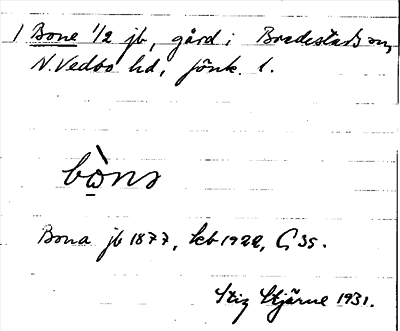 1 Bone 1/2 jb, gård i Bredestads sn,
N. Vedbo hd, Jönk. l.
bònɘ
Bona jb 1877, kb 1922, G 35.
Stig Stjärne 1931.